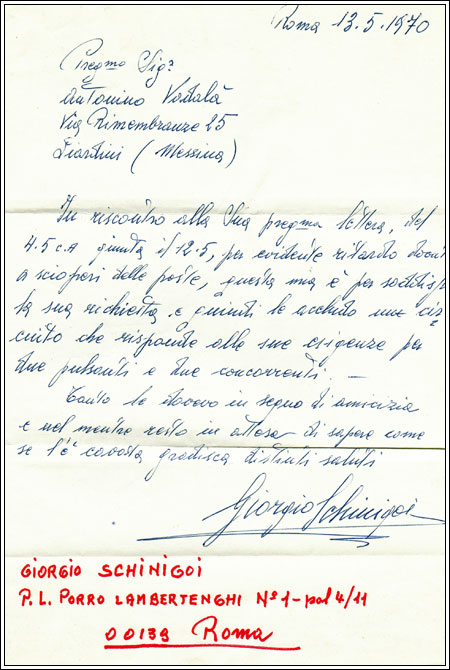 Roma 13.5.1970
Pregmo Sigr
Antonino Vadalà
Via Rimembranze 25
Giardini (Messina)
In riscontro alla Sua pregma lettera, del
4.5 c.a giunta il 12.5, per evidente ritardo dovuto
a scioperi delle poste, questa mia è per soddisf
la sua richiesta e quindi le accludo un cir=
cuito che risponde alle sue esigenze per
due pulsanti e due concorrenti. —
Tanto le dovevo in segno di amicizia
e nel mentre resto in attesa di sapere come
se l'è cavata gradisca distinti saluti
Giorgio Schinigoi
GIORGIO SCHINIGOI
P. L. PORRO LAMBERTENGHI Nº 1 - pal 4/11
00139 Roma